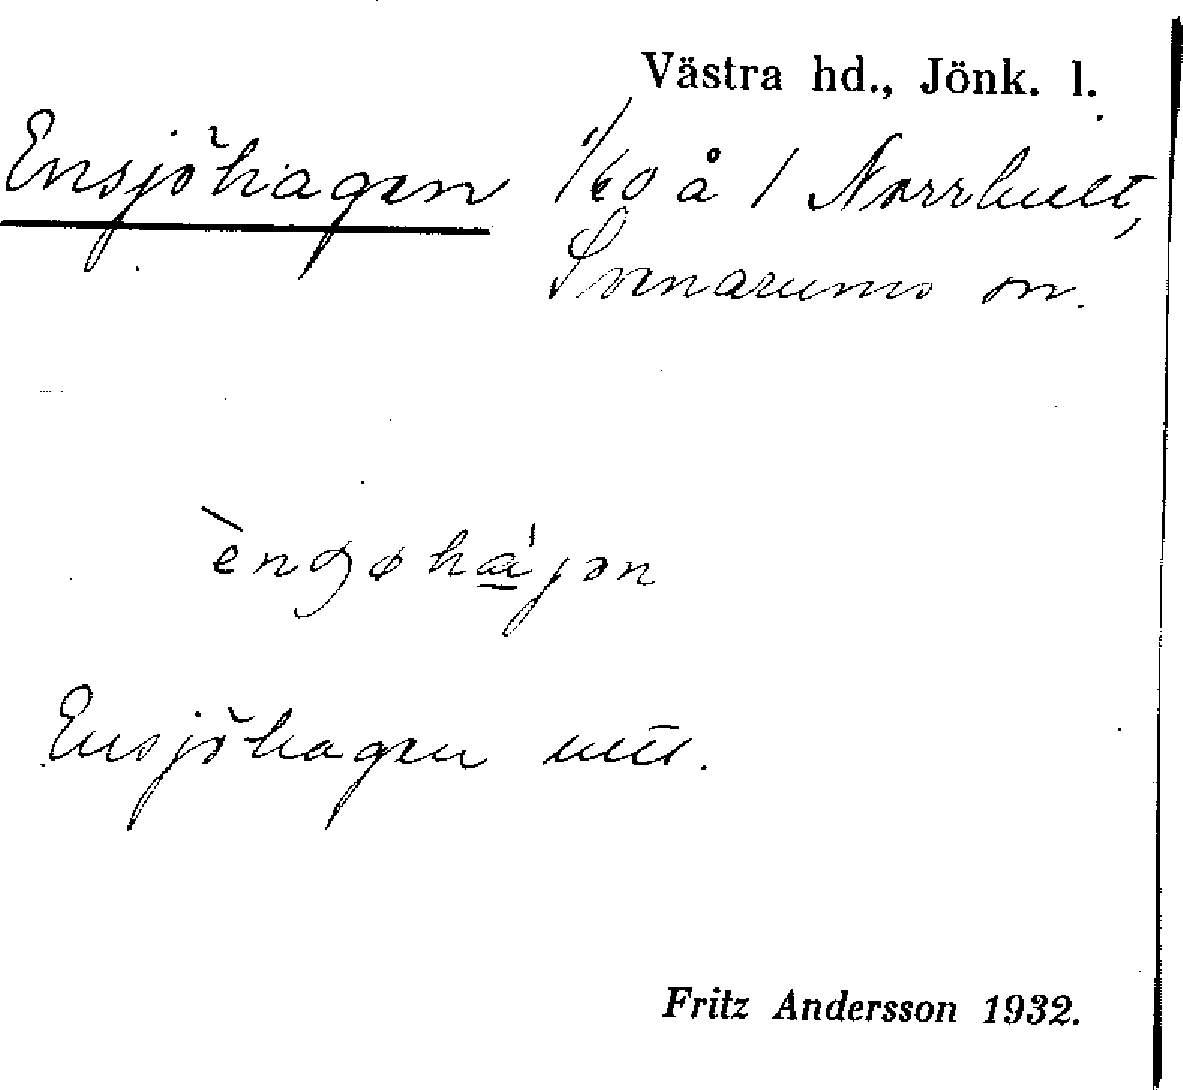 Västra hd., Jönk. l.
Ensjöhagen 1/60 å 1 Norrhult,
Svenarums sn.
Ensjöhagen
Fritz Andersson 1932.